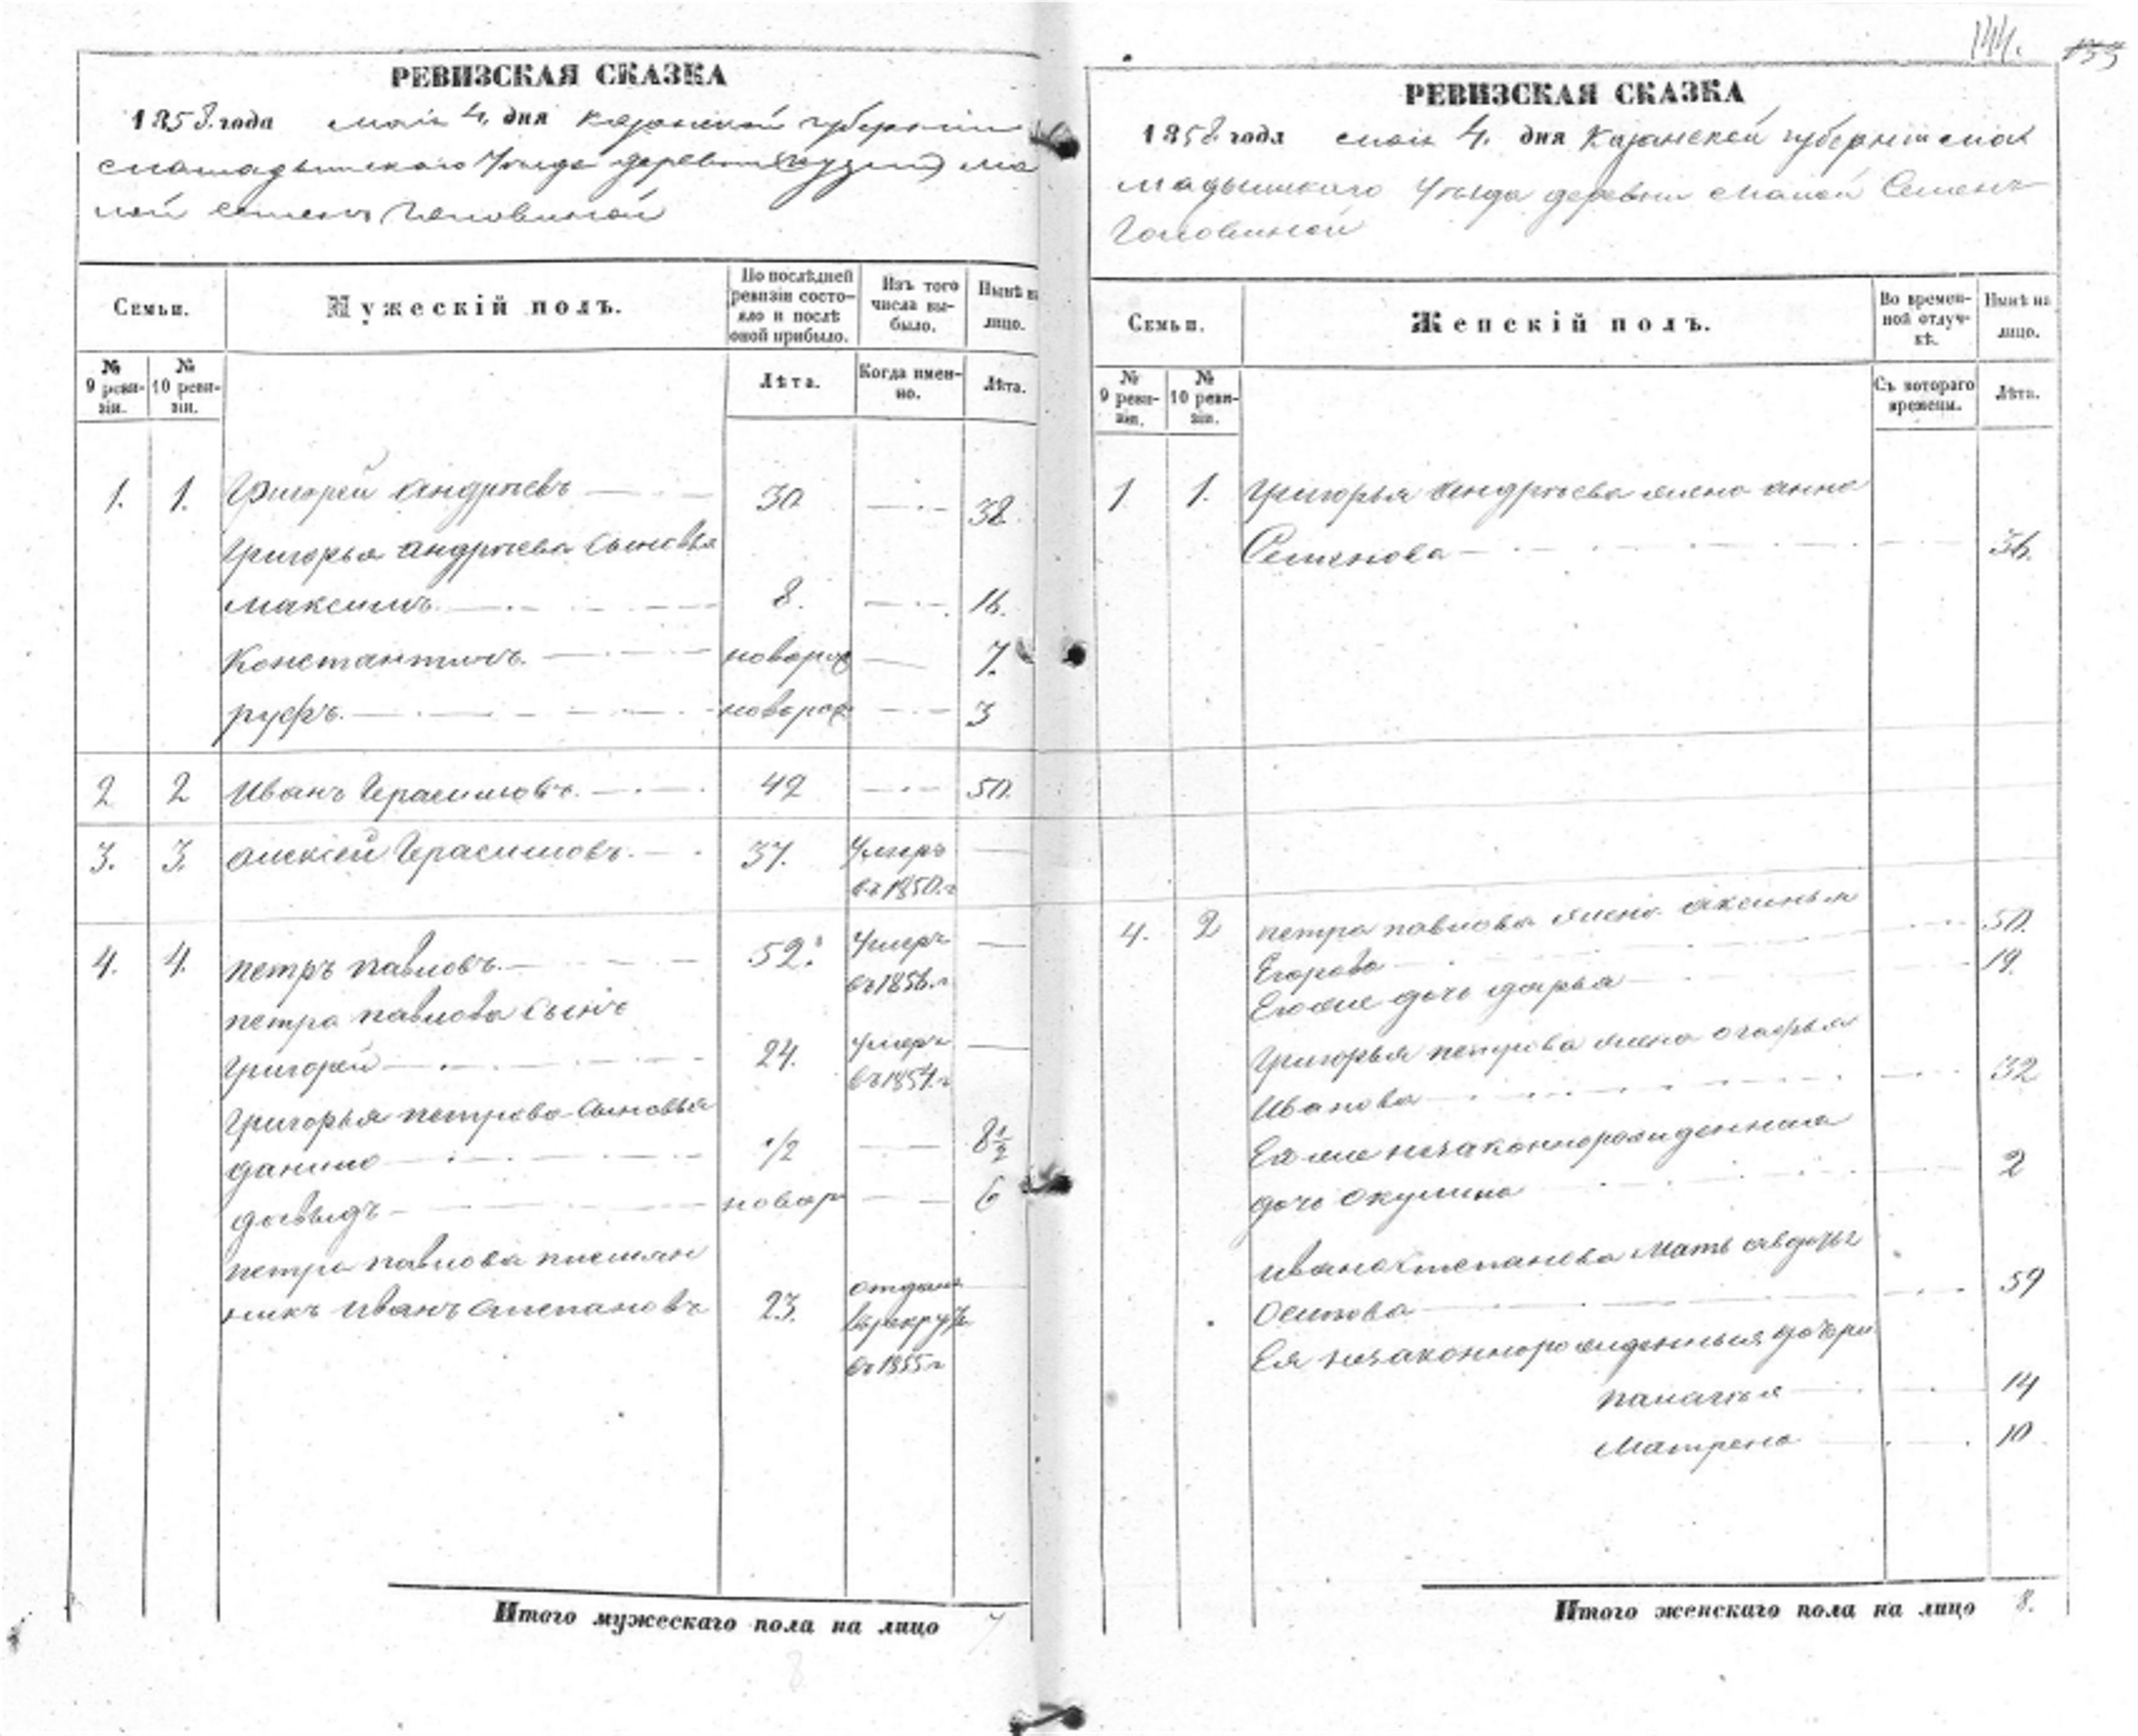 144.
155
РЕВИЗСКАЯ СКАЗКА
1858. года мая 4. дня Казанской губернии
Мамадышскаго Уезда деревни Ма
лой Семен Головиной
Семьи.
Мужескій полъ.
По послѣдней ревизіи состояло и послѣ оной прибыло.
Изъ того числа выбыло.
Нынѣ на лицо.
№ 9 ревизіи.
№ 10 ревизіи.
Лѣта.
Когда именно.
Лѣта.
1. 1. Григорей андреевъ 30 38.
Григорья андреева сыновья
максимъ. 8. 16.
Константинъ. новорож 7.
руфъ. новорож 3
2 2 Иванъ Герасимовъ. 42 50.
3. 3. алексей Герасимовъ. 37. Умеръ
въ 1850. г
4. 4. петръ павловъ. 52. Умеръ
въ 1856. г
петра павлова сынъ
григорей 24. умеръ
въ 1854. г
Григорья петрова сыновья
данило 1/2 8 1/2
давыдъ новор 6
петра павлова племян
никъ иванъ степановъ 23. отданъ
въ рекруты
въ 1855 г
Итого мужескаго пола на лицо 7
8
РЕВИЗСКАЯ СКАЗКА
1858. года мая 4. дня Казанской губернии Ма
мадышскаго Уезда деревни Малой Семен
Головиной
Семьи.
Женскій полъ.
Во временной отлучкѣ.
Нынѣ на лицо.
№ 9 ревизіи.
№ 10 ревизіи.
Съ котораго времени.
Лѣта.
1 1. Григорья андреева жена анна
Семенова 36.
4. 2 петра павлова жена аксинья
Егорова 50.
Егоже дочь дарья 19.
Григорья петрова жена
Иванова 32
Ея же незаконнорожденная
дочь окулина 2
ивана степанова мать авдотья
Осипова 59
Ея незаконнорожденныя дочери
палагья 14
Матрена 10
Итого женскаго пола на лицо 8.